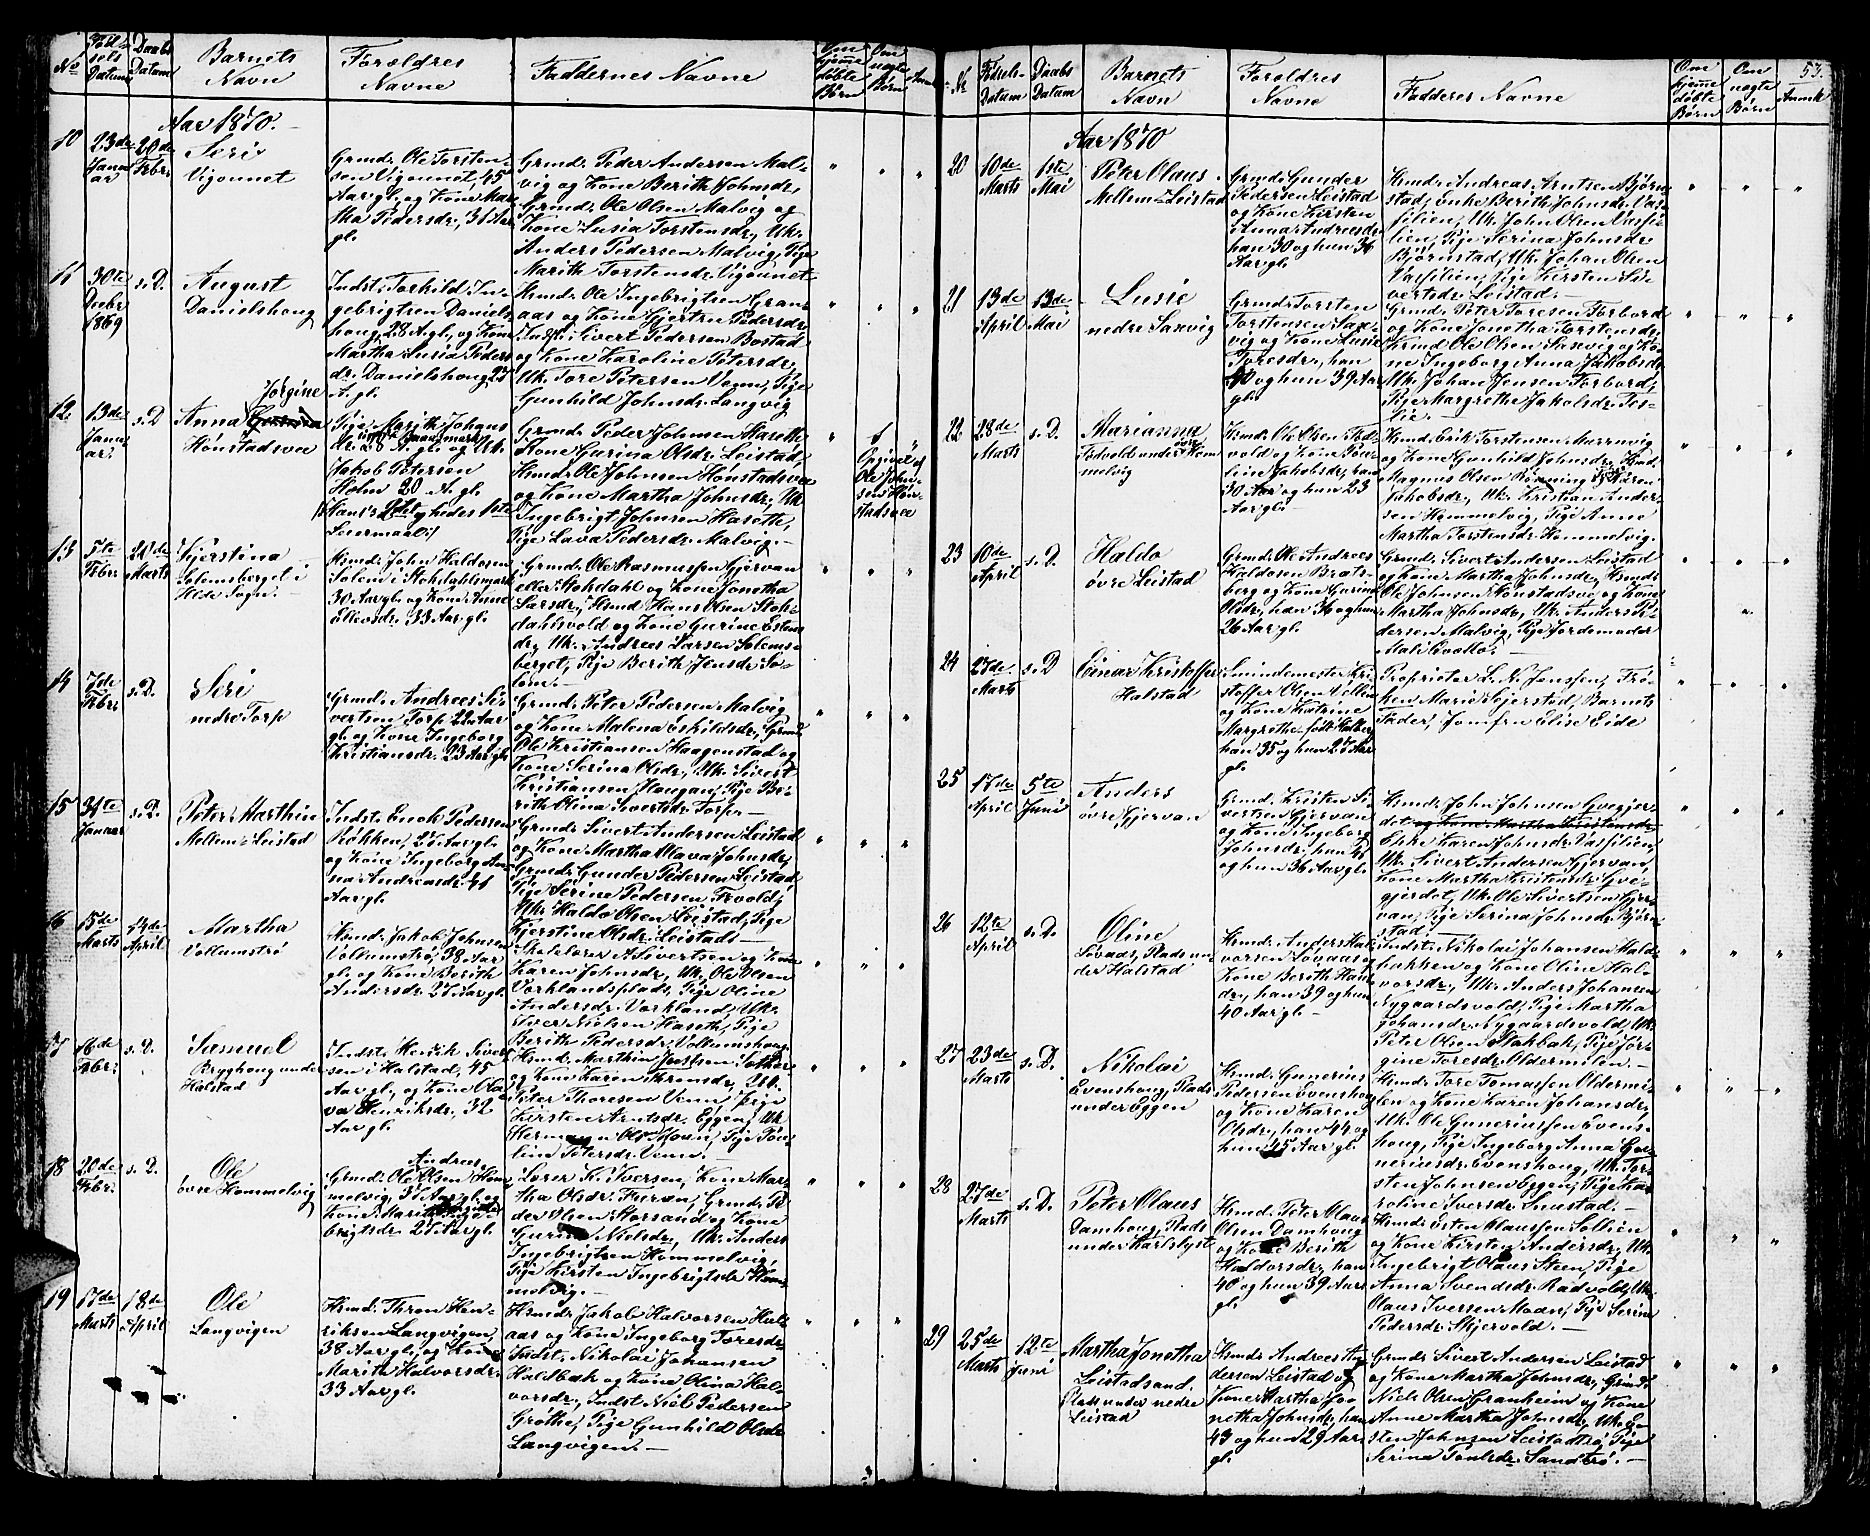 No
Fødsels Datum
Daabs Datum
Barnets Navn
Forældres Navne
Faddernes Navne
Om hjemme døbte Børn
Om uægte Børn
Anmk
Aar 1870.
10
23de Januar
20de Febr:
Seri
Vigounet
Grmd: Ole Torsten-
sen Vigounet, 45
Aar gl., og Kone Mar-
tha Pedersdr., 31 Aar
gl.
Grmd: Peder Andersen Mal-
vig og Kone Berith Johnsdr.,
Grmd: Ole Olsen Malvig og
Kone Lusia Torstensdr., Uk:
Anders Pedersen Malvig, Pige
Marith Torstensdr. Vigounet
11
30te Decbr 1869
s. D.
August
Danielshoug
Indst: Torkild In-
gebrigtsen Daniels-
houg, 28 A. gl., og Kone
Martha Lusia Peders-
dr. Danielshoug 25
A. gl.
Hsmd: Ole Ingebrigtsen Gran-
aas og Kone Gjertru Pedersdr.
Indst: Sivert Pedersen Bostad
og Kone Karoline Petersdr.,
Uk: Tore Petersen Venn, Pige
Gunhild Johnsdr. Langvig
12.
13de Januar:
s. D
Jørgine
Anna
Hønstadsvee
Pige Marith Johans
A. gl. og Uk.
Jakob Petersen
Holm 20 A. gl.
Grmd: Peder Johnsen Hasetth
Kone Gurina Olsdr. Leistad,
Hsmd: Ole Johnsen Hønstadsvee
og Kone Martha Johnsdr., Uk
Ingebrigt Johnsen Hasette,
Pige Lava Pedersdr. Malvig.—
1
Opgivet af
Ole John-
sen Høn-
stadsvee
13
5te Febr:
20de Marts
Kjerstina
Solemsberget i
Hsmd: John Haldosen
Solem i
30 Aar gl. og Kone Anne
Ellevsdr. 33 Aar gl.
Grmd: Ole Rasmussen Gjervan
eller Stokdahl og Kone Jonetha
Larsdr., Hsmd: Hans Olsen Stok-
dahlsvold og Kone Gurine Estens-
dr., Uk: Andreas Larsen Solems-
berget, Pige Berith Jensdr. So-
lem.—
14
7de Febr:
s. D.
Seri
nedre Torp
Grmd: Andreas Si-
vertsen Torp 22 Aar
gl. og Kone Ingeborg
Kristiansdr. 23 Aar gl.
Grmd: Peter Pedersen Malvig
og Kone Malena Eskildsdr., Grmd
Ole Kristiansen Haagenstad og
Kone Serina Olsdr., Uk: Sivert
Kristiansen Haugan, Pige Be-
rith Olina Sivertsdr. Torp.—
15
31te Januar
s. D.
Peter Marthin
Mellem-Leistad
Indst: Enok Pedersen
Røkken, 27 Aar gl.
og Kone Ingeborg An-
na Andreasdr. 41
Aar gl.
Grmd: Sivert Andersen Leistad
og Kone Martha Mava Johnsdr.,
Grmd: Gunder Pedersen Leistad,
Pige Serine Pedersen Tvold,
Uk. Haldo Olsen Leistad, Pige
Kjerstine Olsdr. Leistad.—
16
15de Marts
14de April
Martha
Vollumstrø
Hsmd: Jakob Johnsen
Vollumstrø, 38 Aar
gl. og Kone Berith
Andersdr. 27 Aar gl.
Skolelærer A. Sivertsen og Kone
Karen Johnsdr., Uk. Ole Olsen
Vorklandsplads, Pige Oline
Andersdr. Vorkland, Uk:
Iver Nielsen Haseth, Pige
Berith Pedersdr. Vollumshoug
17
16de Febr:
s. D.
Samuel
Bryghoug under
Halstad
Indst: Henrik Sivert-
sen i Halstad, 45
Aar gl., og Kone Ola-
va Henriksdr. 32
Aar gl.
Hsmd: Marthin
og Kone Karen Thronsdr., Uk.
Peter Thoresen Venn, Pige
Kirsten Arntsdr. Eggen, Uk
Herman Olsen Moan, Pige Pau-
line Petersdr. Venn.—
18
20de Febr:
s. D.
Ole
øvre Hommelvig
Grmd: Ole Andreas Olsen Hom-
melvig, 37 Aar gl. og
Kone Marit Inge-
brigtsdr. 27 Aar gl.
Lærer K. Iversen, Kone Mar-
tha Olsdr. Fuevan, Grmd: Pe-
der Olsen Storsand og Kone
Guruna Nielsdr., Uk: Anders
Ingebrigtsen Hommelvig,
Pige Kirsten Ingebrigtsdr. Hom-
melvig.—
19
17de Marts
18de April
Ole
Langvigen
Hsmd: Thron Hen-
riksen Langvigen,
38 Aar gl., og Kone
Marith Halvorsdr.
33 Aar gl.
Hsmd: Jakob Halvorsen Hal-
aas og Kone Ingeborg Toresdr.
Indst: Nikolai Johansen
Haldbæk og Kone Olina Hal-
vorsdr., Indst Niel Pedersen
Grøthe, Pige Gunhild Olsdr
Langvigen.—
53.
No
Fødsels-Datum
Daabs Datum
Barnets Navn
Foreldres Navne
Fadderes Navne
Om hjemme døbte Børn
Om uægte Børn
Anmk
Aar 1870
20
10de Marts
1ste Mai
Peter Olaus
Mellem-Leistad
Grmd: Gunder
Pedersen Leistad
og Kone Kirsten
Anna Andreasdr.
han 30 og hun 36
Aar gl.
Hsmd: Andreas Arntsen Bjørn-
stad, Enke Berith Johnsdr. Vas-
filien, Uk. John Olsen Vasfi-
lien, Pige Serina Johnsdr
Bjørnstad, Uk. Johan Olsen
Vasfilien, Pige Kirsten Si-
vertsdr. Leistad.—
21
13de April
13de Mai
Lusie
nedre Saxvig
Grmd: Torsten
Torstensen Sax-
vig og Kone Lusie
Toresdr., han
40 og hun 39 Aar
gl.
Grmd: Peter Toresen Forbord
og Kone Jonetha Torstensdr.,
Grmd Ole Olsen Saxvig og Ko-
ne Ingeborg Anna Jakobsdr.
Uk. Johan Jensen Forbord,
Pige Margretha Jakobsdr. Tes-
sie.—
22
28de Marts
s. D.
Marianna
Fedvolds under øvre Hom-
melvig
Hsmd: Ole Olsen Fed-
vold og Kone Pau-
line Jakobsdr., han
30 Aar og hun 23
Aar gl.
Hsmd: Erik Torstensen Murruvig
og Kone Gunhild Johnsdr., Hsmd.
Magnus Olsen Rønning og Karen
Jakobsdr., Uk. Kristian Ander-
sen Hommelvig, Pige Anne
Martha Torstensdr. Hommelvig.
23
10de April
s. D.
Haldo
øvre Leistad
Grmd: Ole Andreas
Haldosen Brats-
berg og Kone Gurina
Olsdr., han 36 og hun
26 Aar gl.
Grmd: Sivert Andersen Leistad
og Kone Martha Johnsdr., Hsmd:
Ole Johnsen Hønstadsve og Kone
Martha Johnsdr., Uk: Anders Pe-
dersen Malvig, Pige Jordemoder
24
27de Marts
s. D
Einar Kristoffer
Halstad
Smindemester Kri-
stoffer Olsen Vellem
og Kone Katrine
Margrethe født Halberg
han 35 og hun 27 Aar
gl.
Proprietær L. N. Jenssen, Frø-
ken Marie Sejersted, Barnets
Fader, Jomfru Elise Eide
25
17de April
5te Juni
Anders
øvre Gjervan
Grmd. Kristen Si-
vertsen Gjervan
og Kone Ingeborg
Johnsdr., han 41
og hun 36 Aar gl.
Hsmd: John Johnsen Gvegjer-
det og Kone Martha Kristensdr,
Enke Karen Johnsdr. Vasfilien,
Uk: Sivert Andersen Gjervan,
Kone Martha Kristensdr. Gve-
gjerdet, Uk. Ole Sivertsen Gjer-
van, Pige Serina Johnsdr. Bjørn-
stad.—
26
12te April
s. D.
Oline
Løvaas, Plads un-
der Halstad
Hsmd: Anders Hal-
vorsen Løvaas og
Kone Berith Hans-
dr., han 39 og hun
40 Aar gl.
Indst: Nikolai Johansen Hald-
bakken og Kone Oline Hal-
vorsdr., Uk: Anders Johansen
Nygaardsvold, Pige Martha
Johansdr. Nygaardsvold, Uk.
Peter Olsen Stokbæk, Pige Jør-
gine Toresdr. Oldermelen.—
27
23de Marts
s. D.
Nikolai
Evenshoug, Plads
under Eggen
Hsmd: Gunerius
Pedersen Evenshoug
og Kone Karen
Olsdr., han 44 og
hun 45 Aar gl.
Hsmd: Tore Tomassen Olderme-
len og Kone Karen Johansdr.,
Uk. Ole Guneriussen Evens-
houg, Pige Ingeborg Anna Gu-
neriusdr. Evenshoug, Uk. Tor-
sten Johnsen Eggen, Pige Ka-
roline Iversdr. Snustad.—
28
27de Marts
s. D.
Peter Olaus
Damhoug, Plads
under Karlslyst
Hsmd: Peter Olaus
Olsen Damhoug
og Kone Berith
Haldorsdr., han
40 og hun 39 Aar
gl.
Hsmd: Esten Claussen Solsiën
og Kone Kirsten Andersdr., Uk.
Ingebrigt Olaus Steen, Pige
Anna Svendsdr. Rødvold, Uk.
Olaus Iversen Moan, Pige Serina
Pedersdr. Skjervold.—
29
25de Marts
12te Juni
Martha Jonetha
Leistadsand.
Plads under nedre
Leistad
Hsmd: Andreas An-
dersen Leistad og
Kone Martha Jo-
netha Johnsdr., han
43 og hun 29 Aar
gl.
Grmd: Sivert Andersen Leistad
og Kone Martha Johnsdr., Grmd:
Niels Olsen Granheim og Kone
Anne Martha Johnsdr., Uk. Es-
ten Johnsen Leistadtrø, Pige
Serina Paulsdr. Sandtrø.—